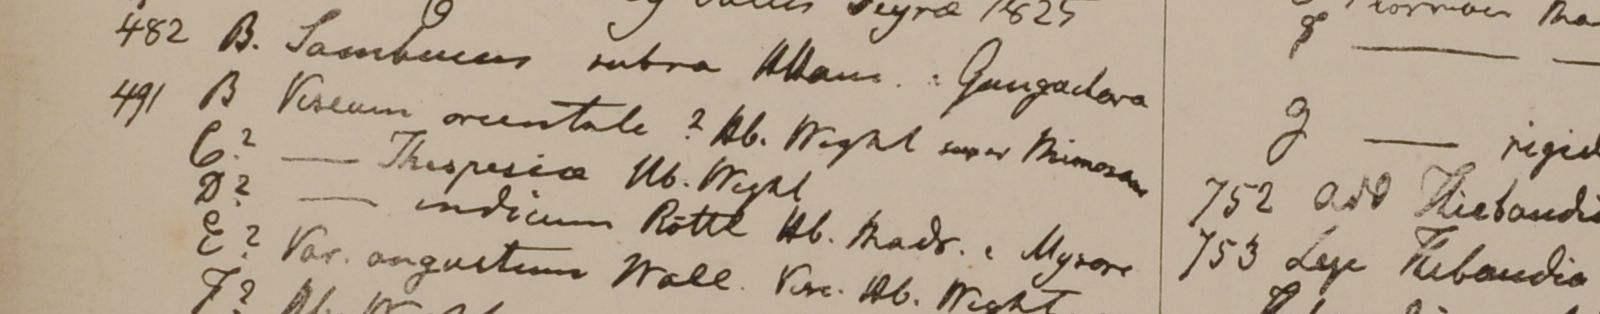 Vallis Deyræ 1825
482 B. Sambucus rubra HHam. : Gungachora
491 B Viscum orientale ? Hb. Wight super Mimosam
C? — Thespesiæ Hb. Wight
D? — indicum Röttl Hb. Madr. e Mysore
E? Var. angustum Wall. Visc. Hb. Wight
F? Hb. Wight
g —
g — rigid
752 add Thiebaudia
753 Lege Thibaudia